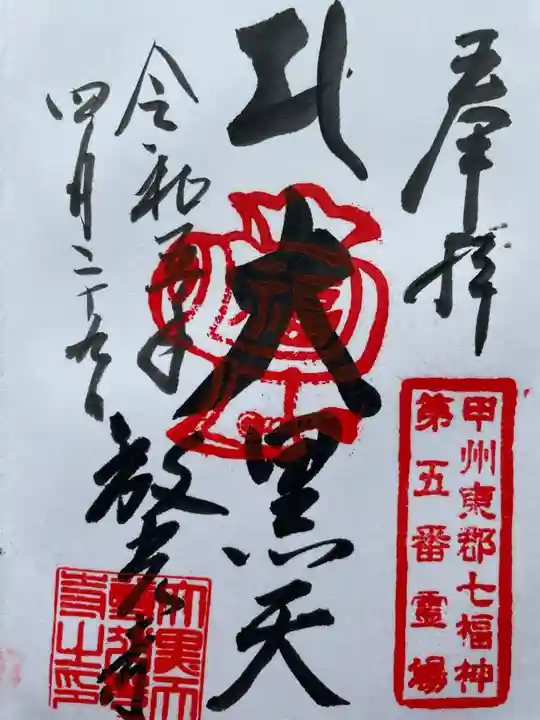 奉拝
甲州東郡七福神
第五番霊場
大黒天
令和五年
四月二十九日
放光寺